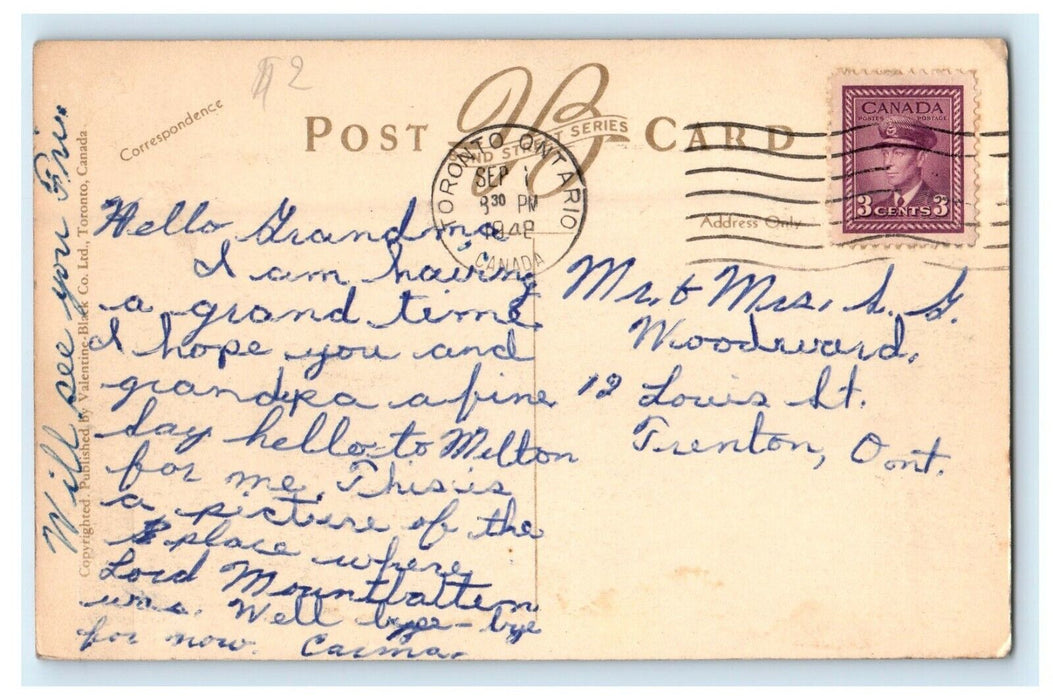 # 2
Correspondence
POST CARD
HAND STUDIO SERIES
TORONTO ONTARIO
SEP 1
8 30 PM
1948
CANADA
CANADA
POSTES POSTAGE
3 CENTS 3
Address Only
Hello Grandma,
I am having
a grand time.
I hope you and
grandpa a fine
day hello to Milton
for me. This is
a picture of the
place where
Lord Mountbattern
was. Well bye-bye
for now. Carma.
Will see you Fri.
Copyrighted. Published by Valentine-Black Co. Ltd., Toronto, Canada
Mr. & Mrs. S. G.
Woodward,
12 Louis St.
Trenton, Ont.